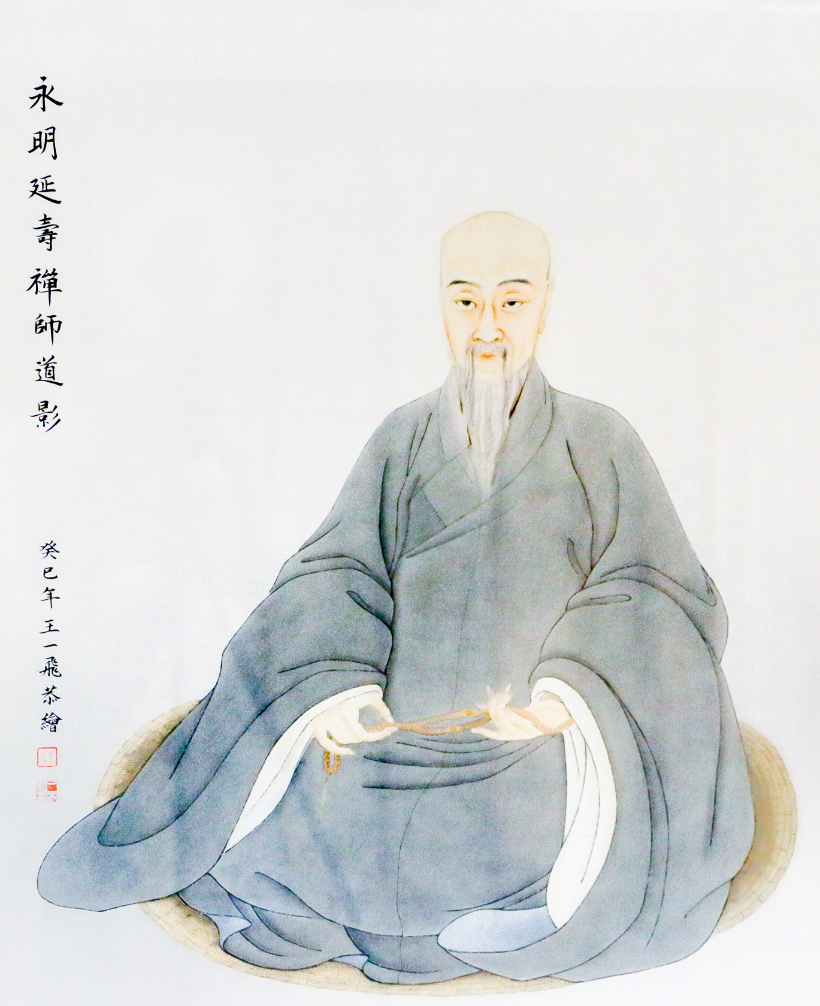 永明延壽禪師道影
癸巳年王一飛恭繪